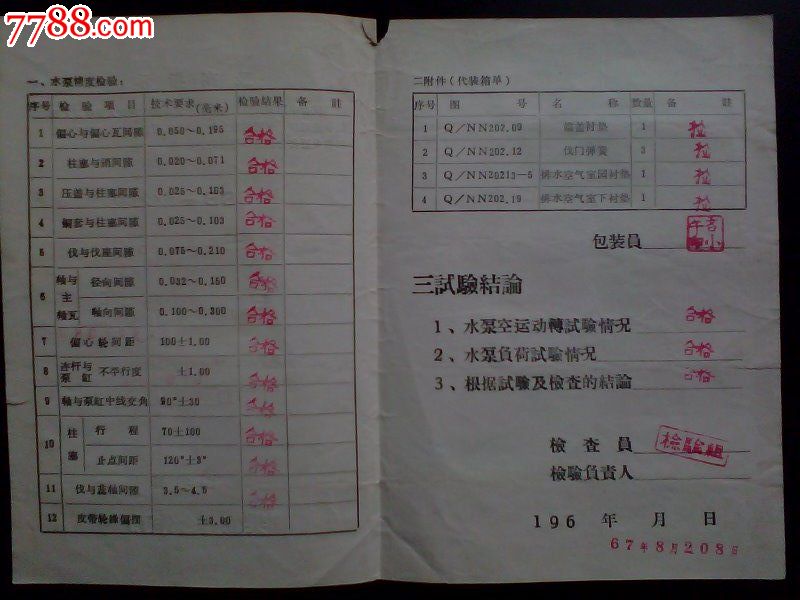 7788.com
一、水泵精度检验:
序号 检验项目 技术要求(毫米) 检验结果 备註
1 偏心与偏心瓦间隙 0.050~0.195 合格
2 柱塞与 间隙 0.020~0.071 合格
3 压盖与柱塞间隙 0.025~0.103 合格
4 铜套与柱塞间隙 0.025~0.103 合格
5 伐与伐座间隙 0.075~0.210 合格
6 轴与主轴瓦 径向间隙 0.032~0.150 合格
轴向间隙 0.100~0.300 合格
7 偏心轮间距 100±1.00 合格
8 连杆与泵缸 不平行度 ±1.00 合格
9 轴与泵缸中线交角 90°±30 合格
10 柱塞 行程 70±100 合格
止点间距 120°±3° 合格
11 伐与 轴间隙 3.5~4.5 合格
12 皮带轮缘偏摆 ±3.00
二附件(代装箱单)
序号 图号 名称 数量 备註
1 Q/NN202.09 端盖衬垫 1
2 Q/NN202.12 伐门弹簧 3
3 Q/NN20213-5 排水空气室园衬垫 1
4 Q/NN202.19 排水空气室下衬垫 1
包装員
三試驗結論
1、水泵空运动轉試驗情况 合格
2、水泵負荷試驗情况 合格
3、根据試驗及檢查的結論 合格
檢查員 檢驗組
檢驗負責人
196 年 月 日
67年8月208日